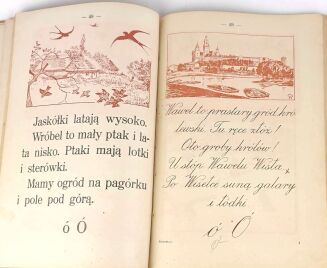 Jaskółki latają wysoko.
Wróbel to mały ptak i la-
ta nisko. Ptaki mają lotki
i sterówki.
Mamy ogród na pagórku
i pole pod górą.
ó Ó
Wawel to prastary gród kró-
lewski. Tu ręce złóż!
Oto groby królów!
U stóp Wawelu Wisła,
Po Wisełce suną galary
i łódki.
ó Ó